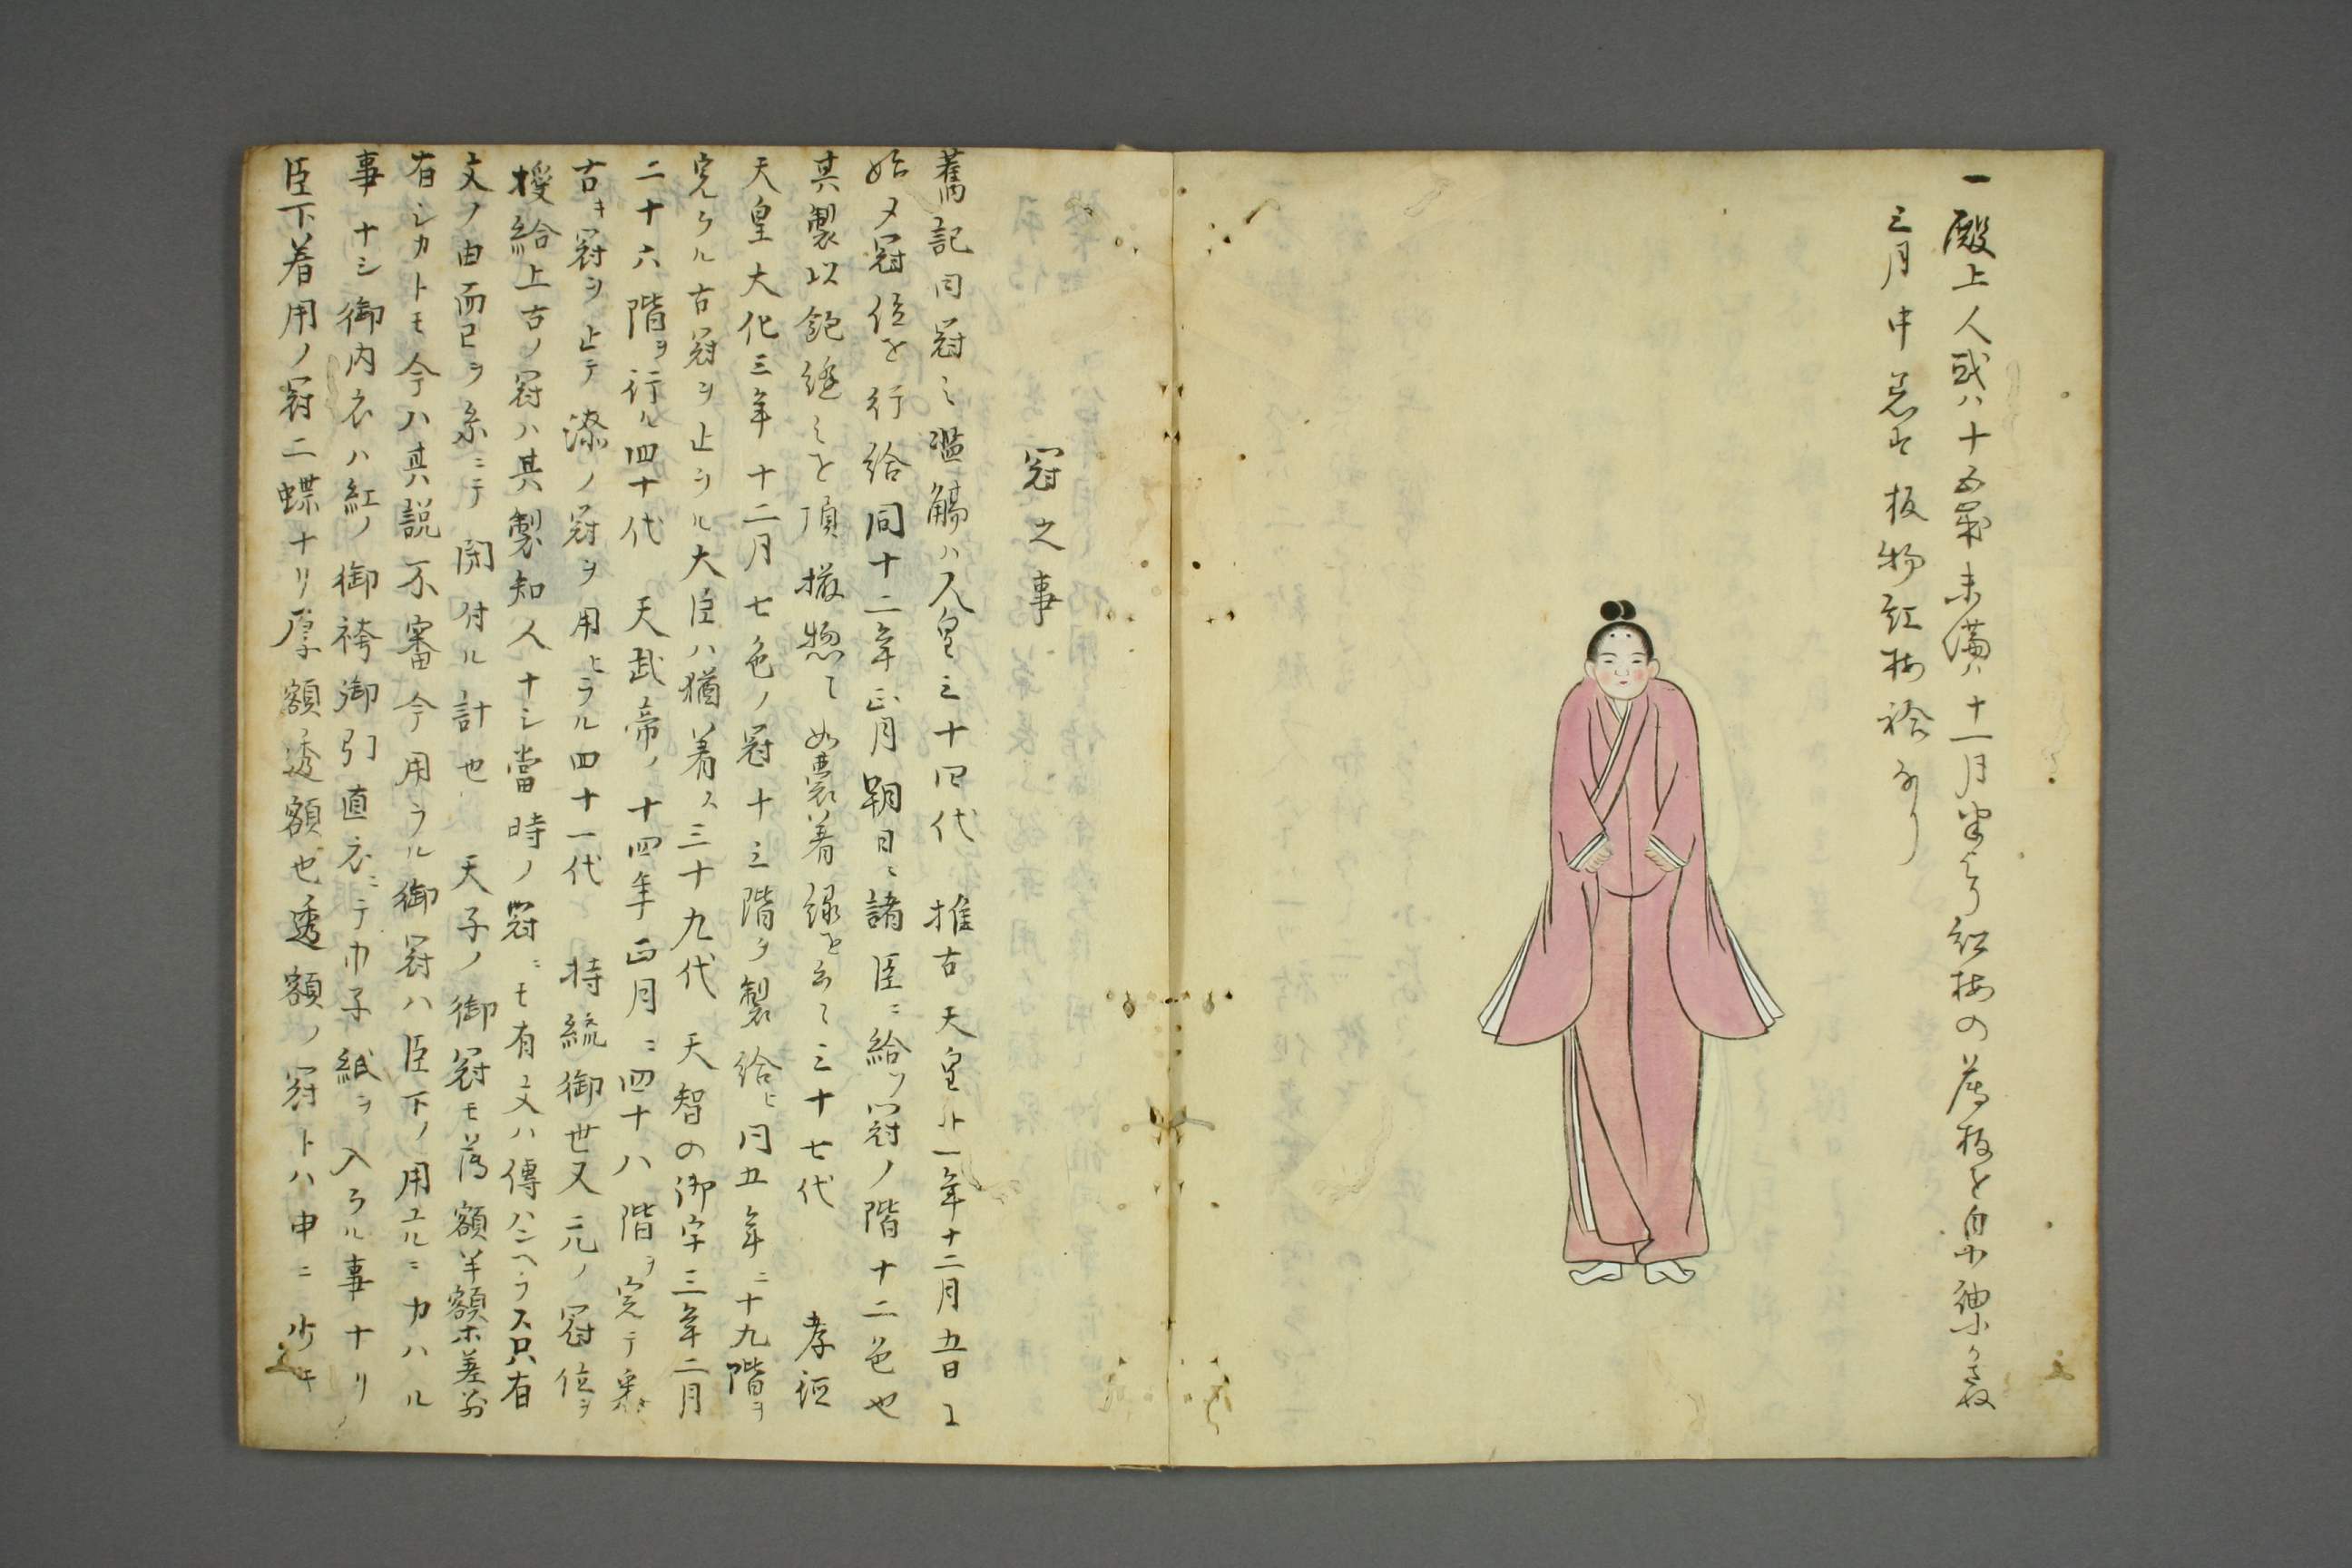 一殿上人或ハ十五歳未満ハ十一月半より紅梅の薄板を自余練かさね
三月中忌は板物紅梅袷なり
冠之事
舊記曰冠之濫觴ハ人皇三十四代 推古天皇廾一年十二月五日ニ
始メ冠位を行給同十二年正月朔日ニ諸臣ニ給ツ冠ノ階十二色也
其製以絁縫之を頂撮惣て如嚢着縁を云々三十七代 孝徳
天皇大化三年十二月七色ノ冠十三階ヲ製給ヒ同五年ニ十九階ヲ
定ケル古冠ヲ止ラル大臣ハ猶着ス三十九代 天智の御宇三年二月
二十六階ヲ行ル四十代 天武帝ノ十四年正月ニ四十八階ヲ定テ
古キ冠ヲ止テ漆ノ冠ヲ用ヒラル四十一代 持統御世又元ノ冠位ヲ
授給上古ノ冠ハ其製知人ナシ當時ノ冠ニモ有文ハ傳ハンヘラス只有
文ノ由而已ヲ糸ニテ閉付ル計也 天子ノ御冠モ薄額半額ホ差別
有シカトモ今ハ其説不審今用ラル御冠ハ臣下ノ用ユルニカハル
事ナシ御内衣ハ紅ノ御袴御引直衣ニテ巾子紙ヲ入ラル事ナリ
臣下着用ノ冠二蝶ナリ厚額透額也透額ノ冠トハ申ニ少キ